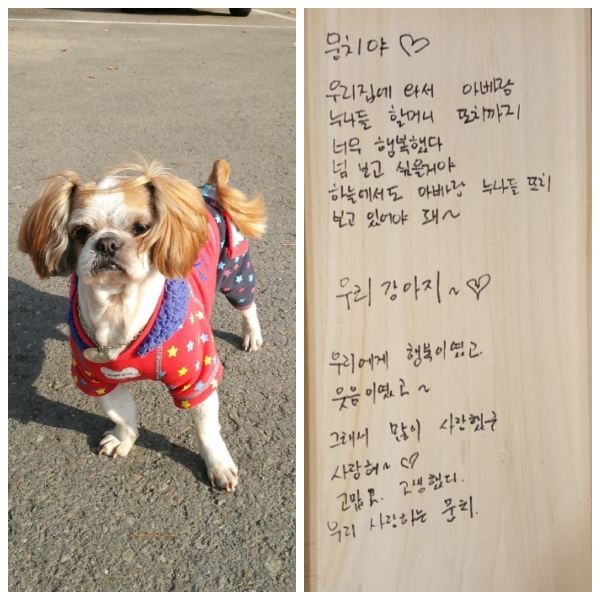 뭉치야 ♡
우리집에 와서 아베랑
누나들 할머니 또치까지
너무 행복했다
넘 보고 싶을거야
하늘에서도 아빠랑 누나들 또치
보고 있어야 돼~
우리 강아지~ ♡
우리에게 행복이였고.
웃음이였고 ~
그래서 많이 사랑했구
사랑해~ ♡
고맙고. 고생했다.
우리 사랑하는 뭉치.